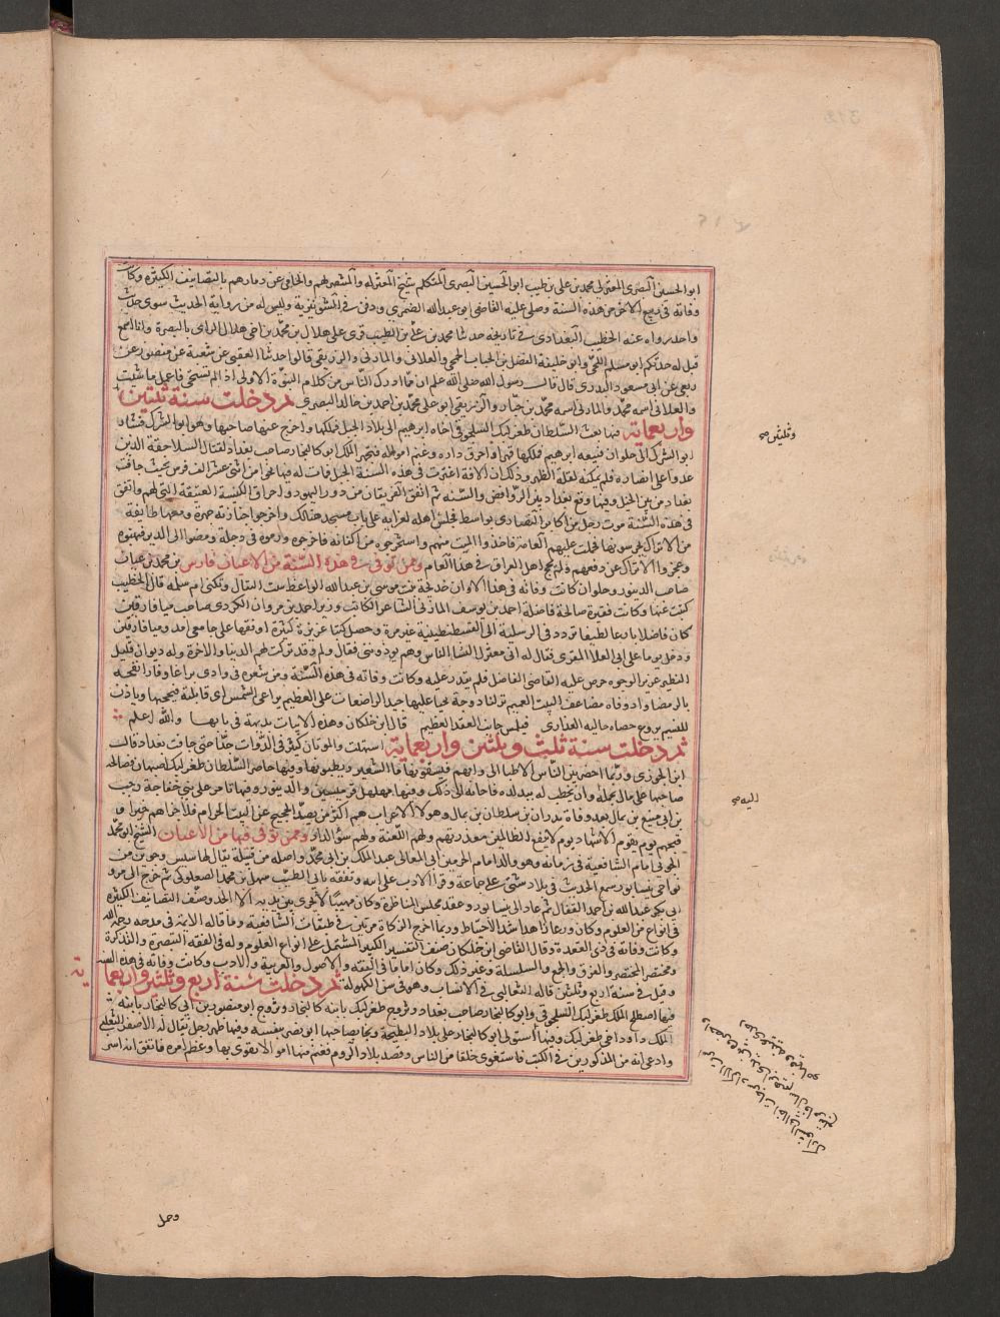 ابو الحسين البصرى المعتزلى محمد بن على بن طيب ابو الحسين البصرى المتكلم شيخ المعتزله والمنتصر لهم والحامى عن دمارهم بالتصانيف الكثيره وكانت
وفاته فى ربيع الاخر من هذه السنة وصلى عليه القاضى ابو عبد الله الصيمرى ودفن فى الشونيزية وليس له من رواية الحديث سوى حديث
واحد رواه عنه الخطيب البغدادى فى تاريخه حدثنا محمد بن على بن الطيب قرى على هلال بن محمد بن اخى هلال الراى بالبصرة وانا اسمع
قيل له حدثكم ابو مسلم الكجى وابو خليفة الفضل بن الحباب الجمحى والغلابى والمازنى والزريقى قالوا حدثنا القعنبى عن شعبة عن منصور عن
ربعى عن ابى مسعود البدرى قال قال رسول الله صلى الله عليه ان مما ادرك الناس من كلام النبوة الاولى اذا لم تستحى فاعمل ما شئت
والغلابى اسمه محمد والمازنى اسمه محمد بن حيان والزريقى ابو على محمد بن احمد بن خالد البصرى ثم دخلت سنة ثلثين
واربعماية فيها بعث السلطان طغرلبك السلجوقى اخاه ابرهيم الى بلاد الجبل فملكها واخرج عنها صاحبها وهو ابو الشوك فسار
ابو الشوك الى حلوان فتبعه ابرهيم فملكها قهرا واحرق داره وغنم امواله فتجهز الملك ابو كاليجار صاحب بغداد لقتال السلاجقة الذين
عدوا على انصاره فلم يمكنه لقلة الظهر وذلك ان الافة اعترت فى هذه السنة الخيل فمات له فيها نحوا من اثنى عشر الف فرس بحيث جافت
بغداد من نتن الخيل وفيها وقع بغداد بين الروافض والسنه ثم اتفق الفريقان من دور اليهود واحراق الكنيسة العتيقة التى لهم واتفق
فى هذه السنة موت رجل من اكابر النصارى بواسط فجلس اهله لعزايه على باب مسجد هنالك واخرجوا جنازته جهرة ومعها طايفة
من الاتراك يحرسونها فحملت عليهم العامة فاخذوا الميت منهم واستخرجوه من اكفانه فاحرقوه ورموه فى دجلة ومضوا الى الدير فنهبوه
وعجزوا الاتراك عن دفعهم ولم يحج اهل العراق فى هذا العام وممن توفى فى هذه السنة من الاعيان فارس بن محمد بن عناز
صاحب الدينور وحلوان كانت وفاته فى هذا الاوان خديجة بنت موسى بن عبد الله الواعظة بنت البقال وتكنى ام سلمه قال الخطيب
كتبت عنها وكانت فقيرة صالحة فاضلة احمد بن يوسف المازى الشاعر الكاتب وزير احمد بن مروان الكردى صاحب ميافارقين
كان فاضلا بارعا لطيفا تردد فى الرسلية الى القسطنطينية غير مرة وحصل كتبا عزيزة كثيرة اوقفها على جامعى امد وميافارقين
ودخل يوما على ابى العلا المعرى فقال له انى معتزل الناس وهم يوذوننى فقال ولم وقد تركت لهم الدنيا والاخرة وله ديوان قليل
النظير عزيز الوجود حرص عليه القاضى الفاضل فلم يقدر عليه وكانت وفاته فى هذه السنة ومن شعره فى وادى بزاعا وقانا لفحة
بالرمضا واد وقاه مضاعف النبت العميم نزلنا دوحه فحنا علينا حنو المرضعات على الفطيم يراعى الشمس انى قابلتنه فيحجبها وياذن
للنسيم يروع حصاه حالية العذارى فيلمس جانب العقد العظيم قال ابن خلكان وهذه الابيات بديعة فى بابها والله اعلم
ثم دخلت سنة ثلث وثلثين واربعماية استهلت والموتان كثير فى الدواب جدا حتى جافت بغداد قال
ابن الجوزى وربما احضر بعض الناس الاطبا الى دوابهم فيسقونها ماء الشعير ويطبونها وفيها حاصر السلطان طغرلبك اصبهان فصالحه
صاحبها على مال يحمله وان يخطب له ببلده فاجابه الى ذلك وفيها ملك مهلهل قرميسين والدينور وفيها تامر على بنى خفاجة رجب
بن ابى منيع بن ثمال بعد وفاة بدران بن سلطان بن ثمال وهولاء الاعراب هم اكثر من يصد الحجيج عن البيت الحرام فلا جزاهم خيرا و
قبحهم يوم يقوم الاشهاد يوم لا ينفع الظالمين معذرتهم ولهم اللعنة ولهم سوء الدار وممن توفى فيها من الاعيان الشيخ ابو محمد
الجوينى امام الشافعية فى زمانه وهو والد امام الحرمين ابى المعالى عبد الملك بن ابى محمد واصله من قبيلة يقال لها سنبس وجوين من
نواحى نيسابور سمع الحديث فى بلاد شتى على جماعة وقرا الادب على ابيه وتفقه بابى الطيب سهل بن محمد الصعلوكى ثم خرج الى مرو
الى ابى بكر عبد الله بن احمد القفال ثم عاد الى نيسابور وعقد مجلس المناظرة وكان مهيبا لا يجرى بين يديه الا الجد وصنف التصانيف الكثيرة
فى انواع من العلوم وكان ورعا زاهدا شديد الاحتياط وربما اخرج الزكاة مرتين فى طبقات الشافعية وما قاله الايمة فى مدحه رحمه الله
وكانت وفاته فى ذى القعدة وقال القاضى ابن خلكان صنف التفسير الكبير المشتمل على انواع العلوم وله فى الفقه التبصرة والتذكرة
ومختصر المختصر والفرق والجمع والسلسلة وغير ذلك وكان اماما فى الفقه والاصول والعربية والادب وكانت وفاته فى هذه السنه
وقيل فى سنة اربع وثلثين قاله الثعالبى فى الانساب وهو فى سن الكهولة ثم دخلت سنة اربع وثلثين واربعما
ية
فيها اصطلح الملك طغرلبك السلجوقى وابو كاليجار صاحب بغداد وتزوج طغرلبك بابنة كاليجار وتزوج ابو منصور بن ابى كاليجار بابنة
الملك داود اخى طغرلبك وفيها استولى ابو كاليجار على بلاد البطيحة ونجا صاحبها ابو نصر بنفسه وفيها ظهر رجل يقال له الاصفر التغلبى
وادعى انه من المذكورين فى الكتب فاستغوى خلقا من الناس وقصد بلاد الروم فغنم منها اموالا تقوى بها وعظم امره فاتفق انه اسر
وثلثين صح
اليه صح
وحمل